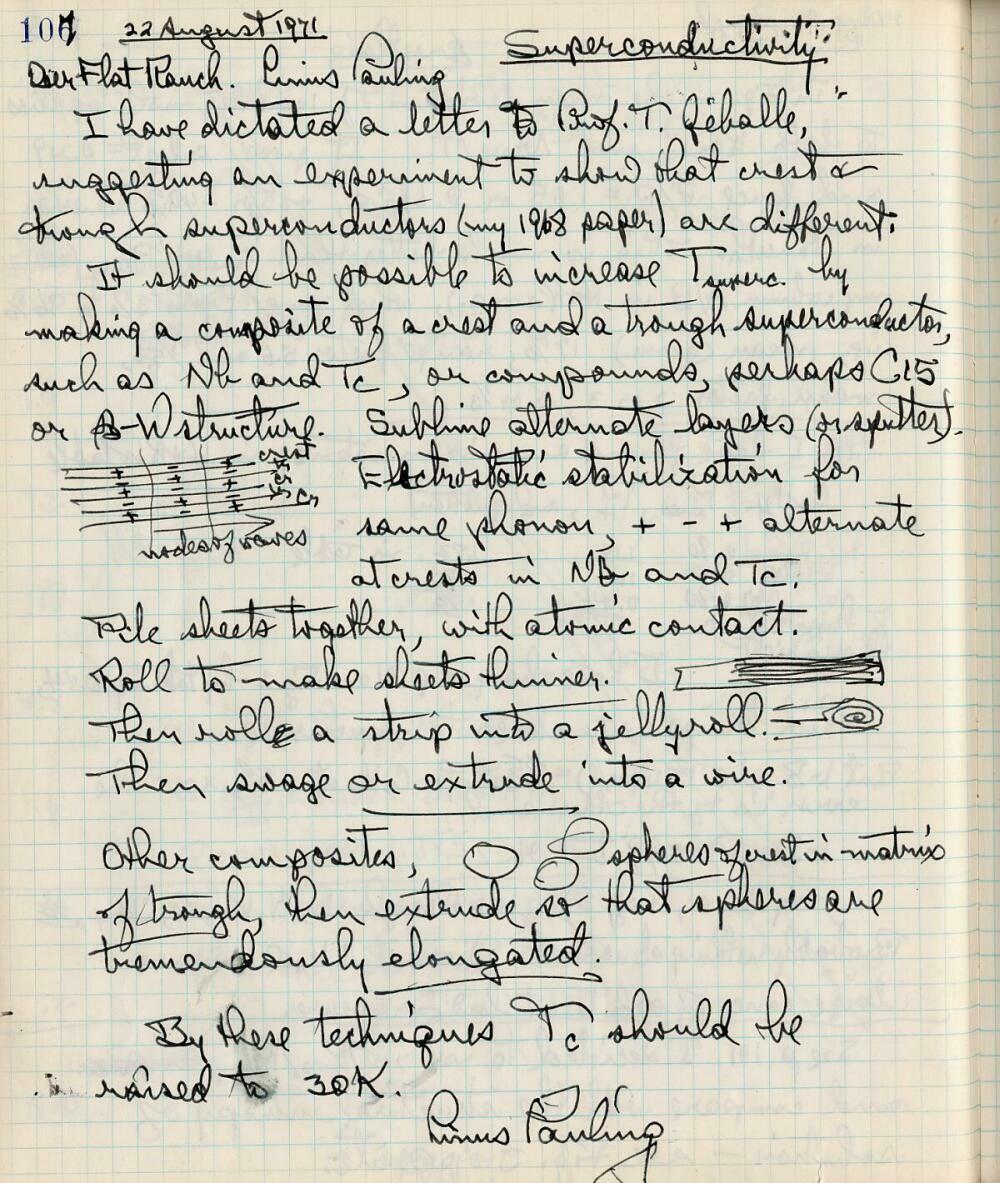 107 22 August 1971 Superconductivity.
Deer Flat Ranch. Linus Pauling
I have dictated a letter to Prof. T. Geballe,
suggesting an experiment to show that crest &
trough superconductors (my 1968 paper) are different.
It should be possible to increase Tsuperc. by
making a composite of a crest and a trough superconductor,
such as Nb and Tc, or compounds, perhaps C15
or β-W structure. Sublime alternate layers (or sputter).
crest
+ - +
Electrostatic stabilization for
same phonon, + - + alternate
nodes of waves
at crests in Nb and Tc.
Pile sheets together, with atomic contact.
Roll to make sheets thinner.
Then roll a strip into a jellyroll.
Then swage or extrude into a wire.
Other composites, spheres of crest in matrix
of trough, then extrude so that spheres are
tremendously elongated.
By these techniques Tc should be
raised to 30K.
Linus Pauling